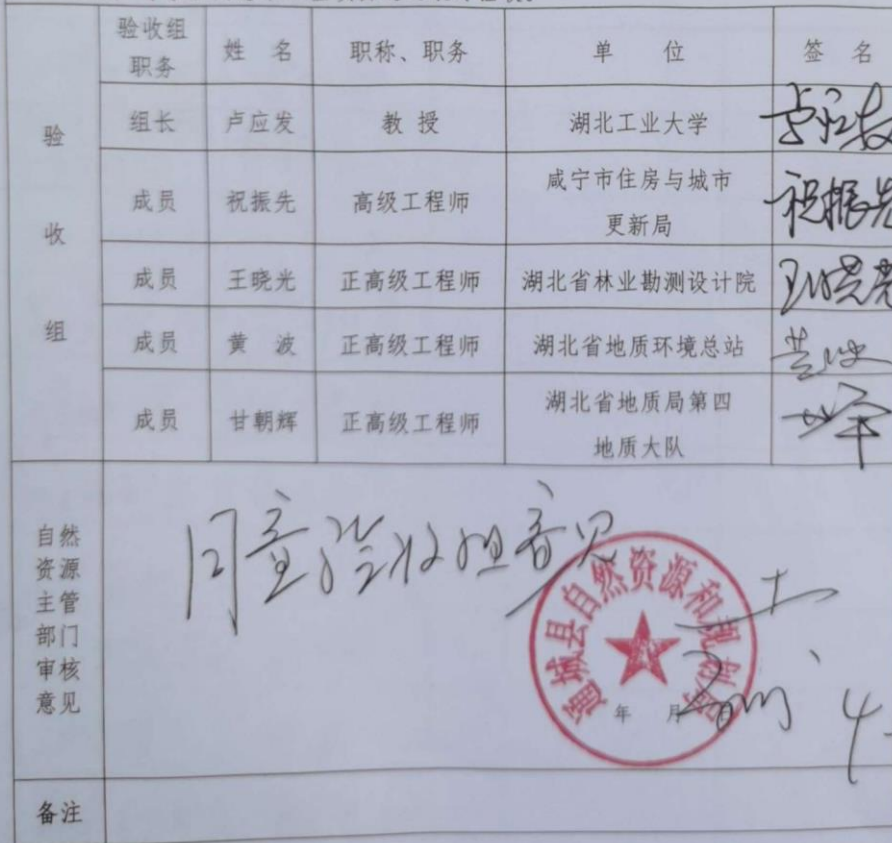 验收组职务 姓 名 职称、职务 单 位 签 名
验收组
组长 卢应发 教 授 湖北工业大学 卢应发
成员 祝振先 高级工程师 咸宁市住房与城市更新局 祝振先
成员 王晓光 正高级工程师 湖北省林业勘测设计院 王晓光
成员 黄 波 正高级工程师 湖北省地质环境总站 黄波
成员 甘朝辉 正高级工程师 湖北省地质局第四地质大队
自然资源主管部门审核意见
同意验收组意见
通城县自然资源和规划局
年 月
备注